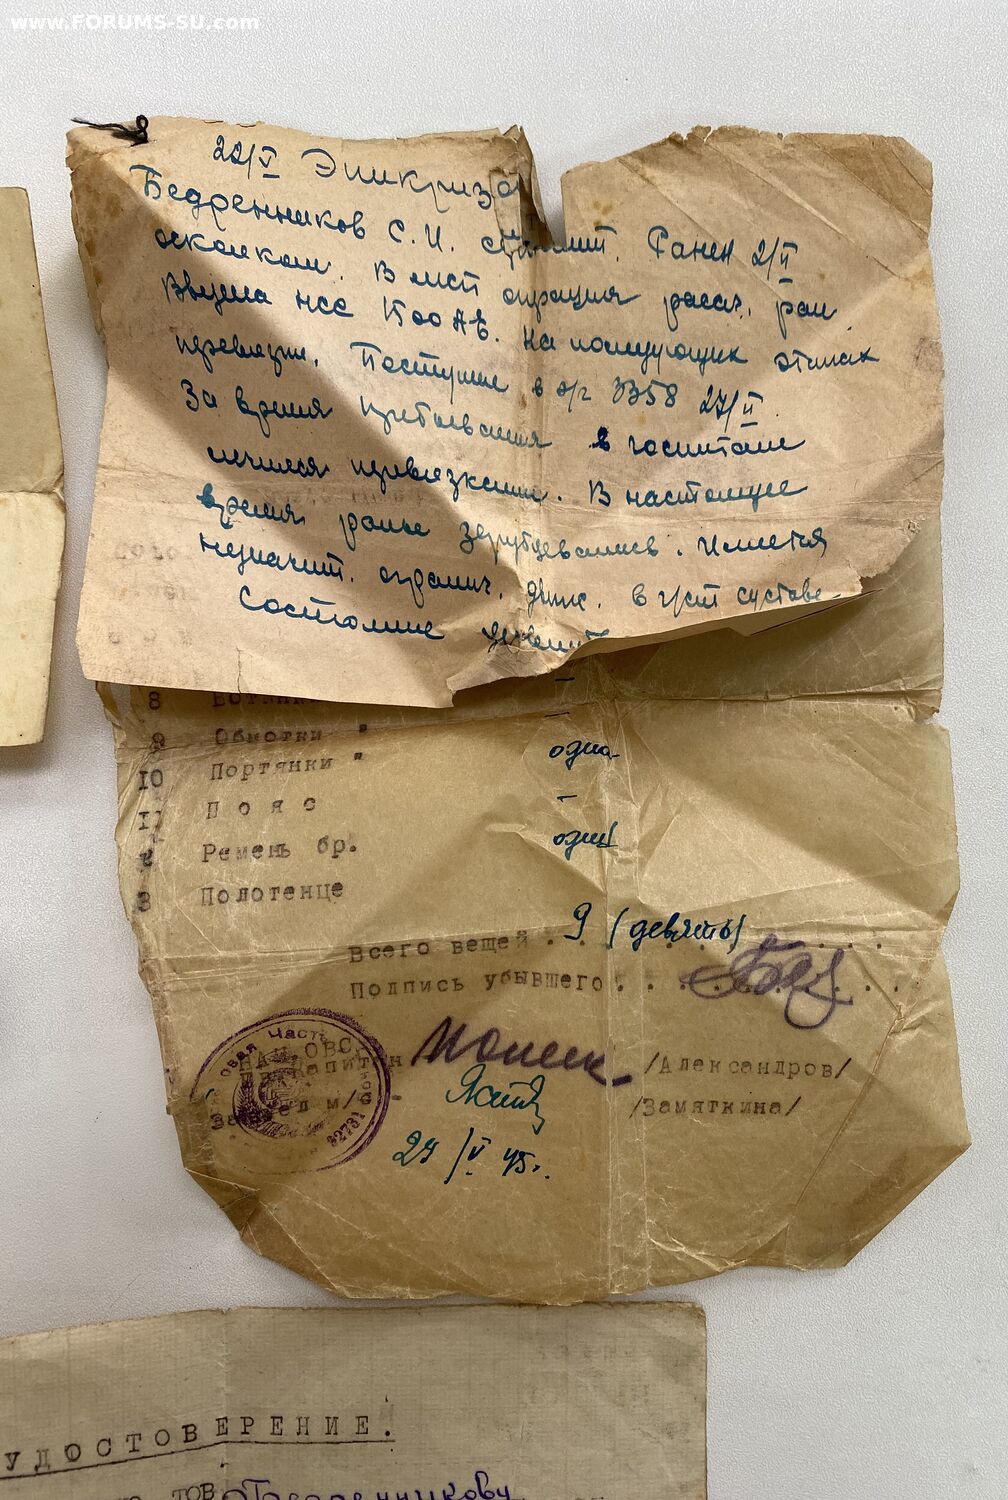 www.FORUMS-SU.com
22/V Эпикриз
Бедренников С. И. Ранен 2/II
осколком. В мсб операция рассеч. ран
На последующих этапах
перевязки. Поступил в э/г 3358 27/II
За время пребывания в госпитале
лечился перевязками. В настоящее
время раны зарубцевались. Имеется
незначит. огранич. движ. в суставе
Состояние
8
9 Обмотки "
10 Портянки " одна
11 Пояс -
Ремень бр. один
3 Полотенце
Всего вещей . 9 (девять)
Подпись убывшего . . . .
Капитан /Александров/
/Замяткина/
овая Часть
82731
24/V 45г.
УДОСТОВЕРЕНИЕ.
тов. Бедренникову